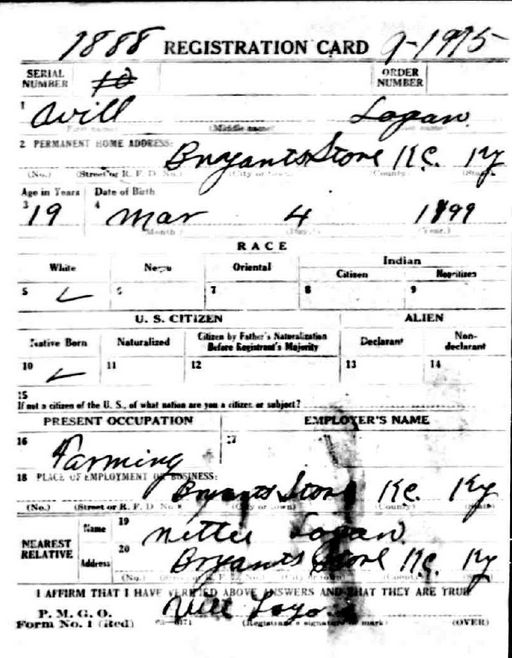 1888 REGISTRATION CARD 9-1975
SERIAL NUMBER 10 ORDER NUMBER
1 Will Logan
(First name) (Middle name) (Last name)
2 PERMANENT HOME ADDRESS:
Bryants Store Kc. Ky
(No.) (Street or R. F. D. No.) (City or town) (County) (State)
Age in Years Date of Birth
3 19 4 Mar 4 1899
(Month) (Day) (Year)
RACE
White Negro Oriental Indian
Citizen Noncitizen
5 6 7 8 9
U. S. CITIZEN ALIEN
Native Born Naturalized Citizen by Father's Naturalization Before Registrant's Majority Declarant Non-declarant
10 11 12 13 14
15
If not a citizen of the U. S., of what nation are you a citizen or subject?
PRESENT OCCUPATION EMPLOYER'S NAME
16 Farming 17
18 PLACE OF EMPLOYMENT OR BUSINESS:
Bryants Store Kc. Ky
(No.) (Street or R. F. D. No.) (City or town) (State)
NEAREST RELATIVE Name 19 Nettie Logan
Address 20 Bryants Store Kc. Ky
(No.) (Street or R. F. D. No.) (City or town) (County) (State)
I AFFIRM THAT I HAVE VERIFIED ABOVE ANSWERS AND THAT THEY ARE TRUE
P. M. G. O. Will
Form No. 1 (Red) (Registrant's signature or mark) (OVER)